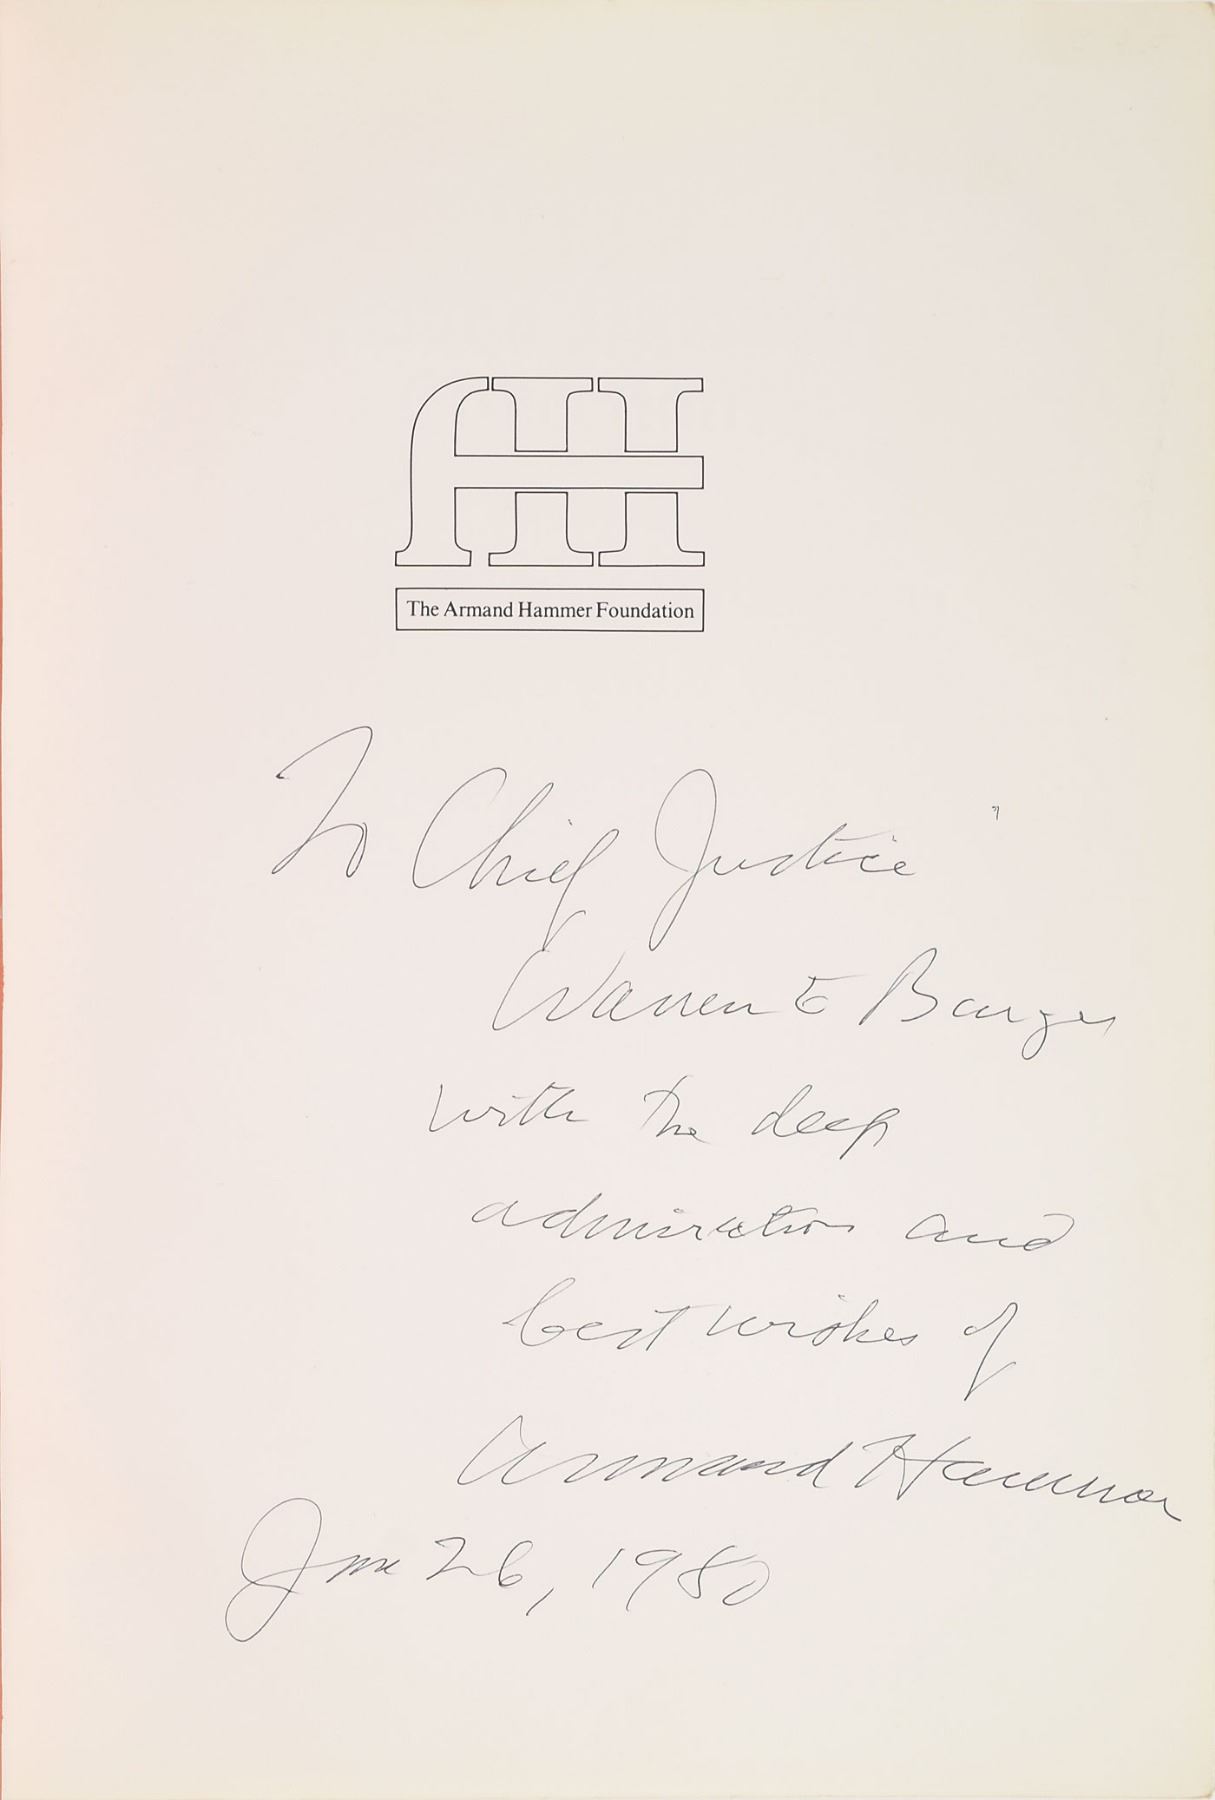 AH
The Armand Hammer Foundation
To Chief Justice
Warren E Burger
with the deep
admiration and
best wishes of
Armand Hammer
June 26, 1980